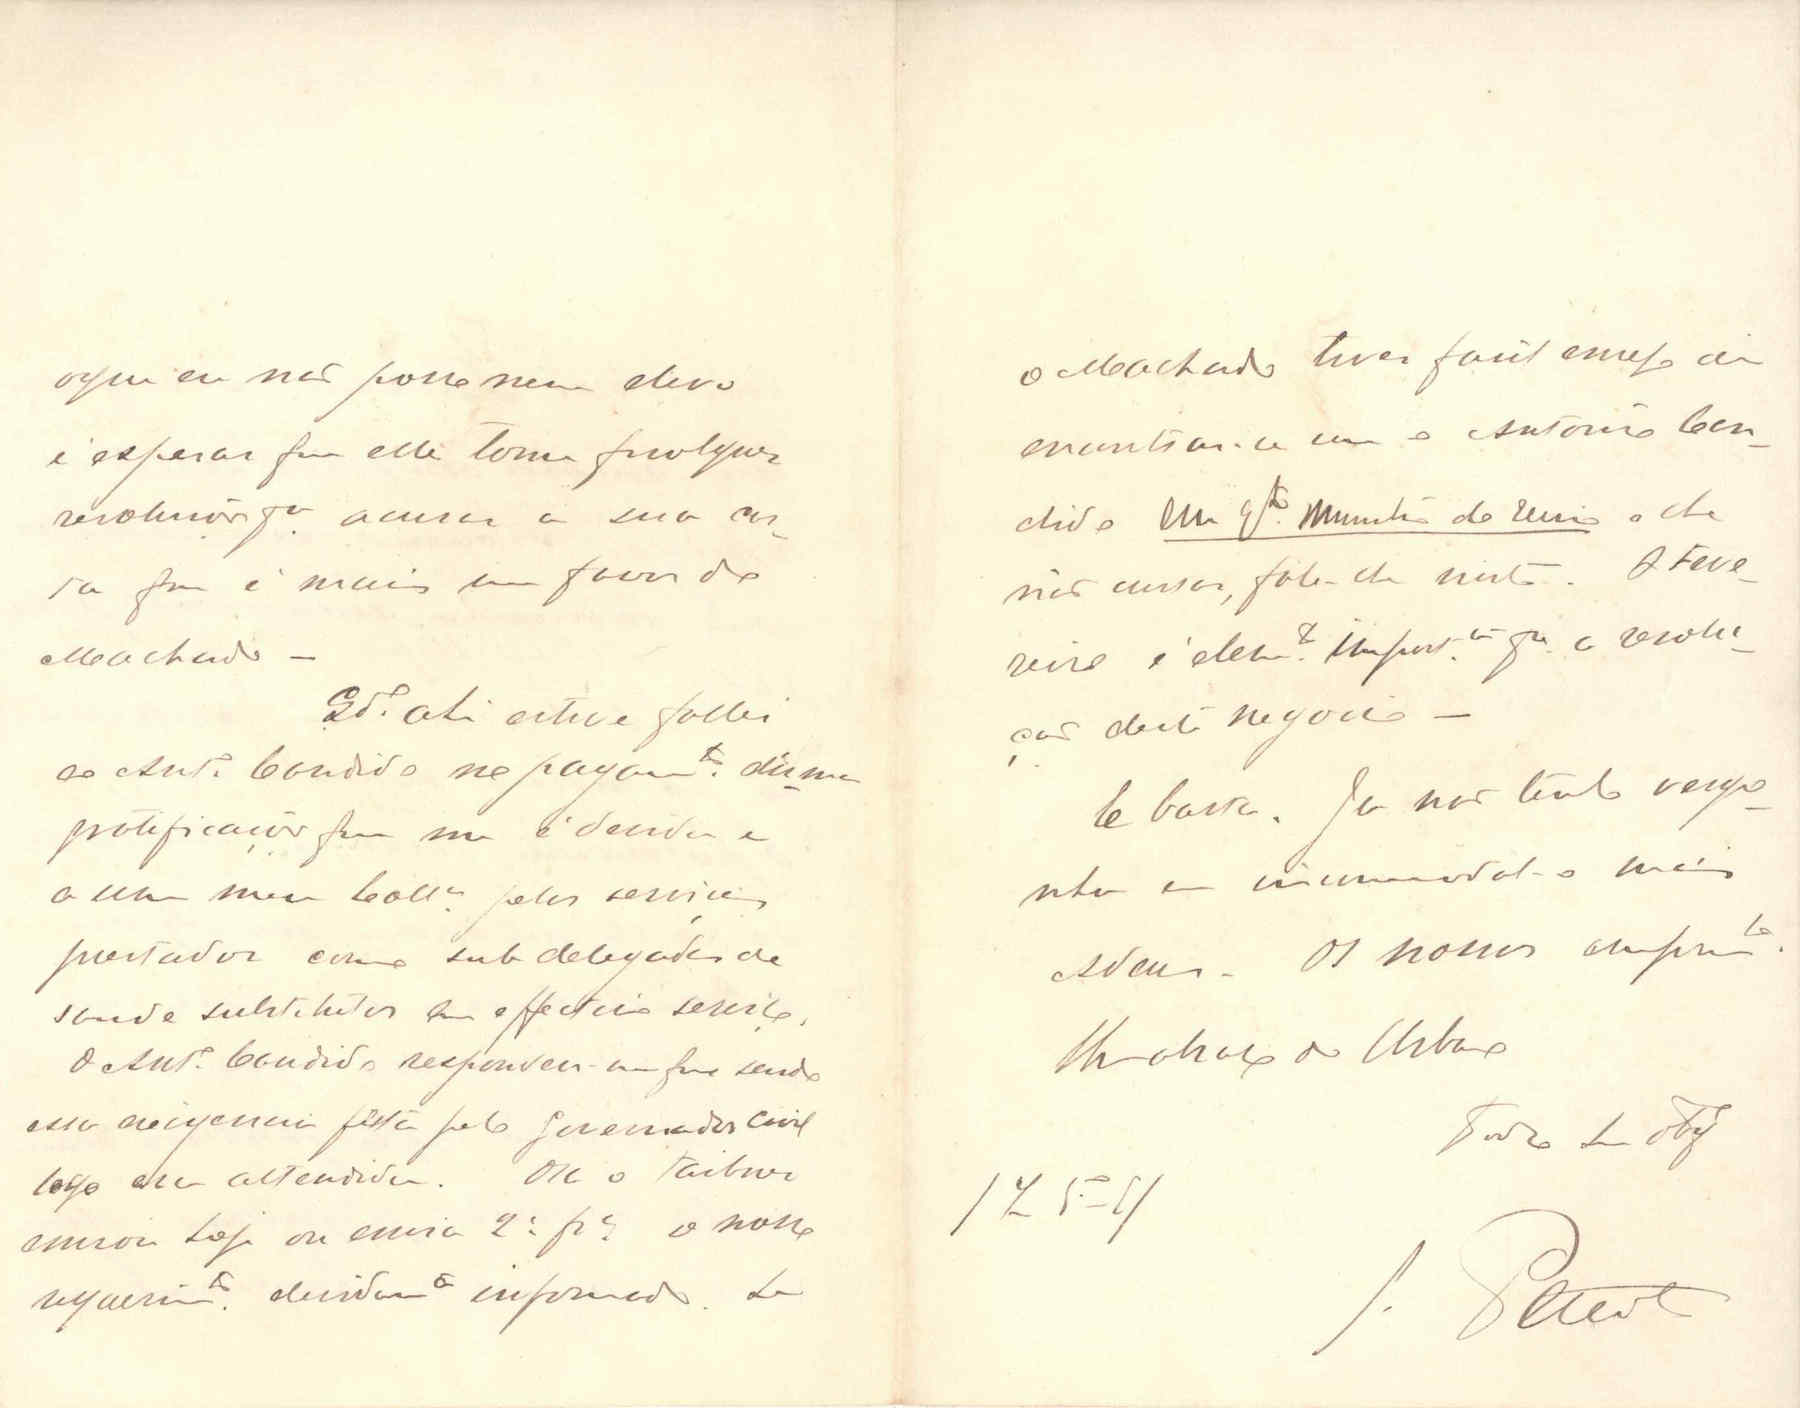 oque eu não posso nem devo
é esperar que elle tome qualquer
resolução pª. accusar a sua car-
ta que é mais um favor do
Machado —
Qdº. ahi estive fallei
ao Antº. Candido no pagamtº. duma
gratificação que me é devida e
a um meu Collª. pelos serviços
prestados como sub delegados de
saude substitutos em effectivo serviço.
O Antº. Candido respondeu-me que sendo
essa exigencia feita pelo Governador Civil
logo era attendida. Ora o
enviou hoje ou envia 2ª. frª. o nosso
requerimtº. devidamtº informado. Se
o Machado tiver facil ensejo de
encontrar-se com o Antonio Can-
dido e lhe
não cussar, fale-lhe nisto. O Feve-
reiro é elemtº. importte. pª. a resolu-
ção deste negocio —
E basta. Ja não tenho vergo-
nha em incommodal-o mais
Adeus. Os nossos cumprimtos.
Um abraço do Urbano
Todo seu
17 5º-91
J.